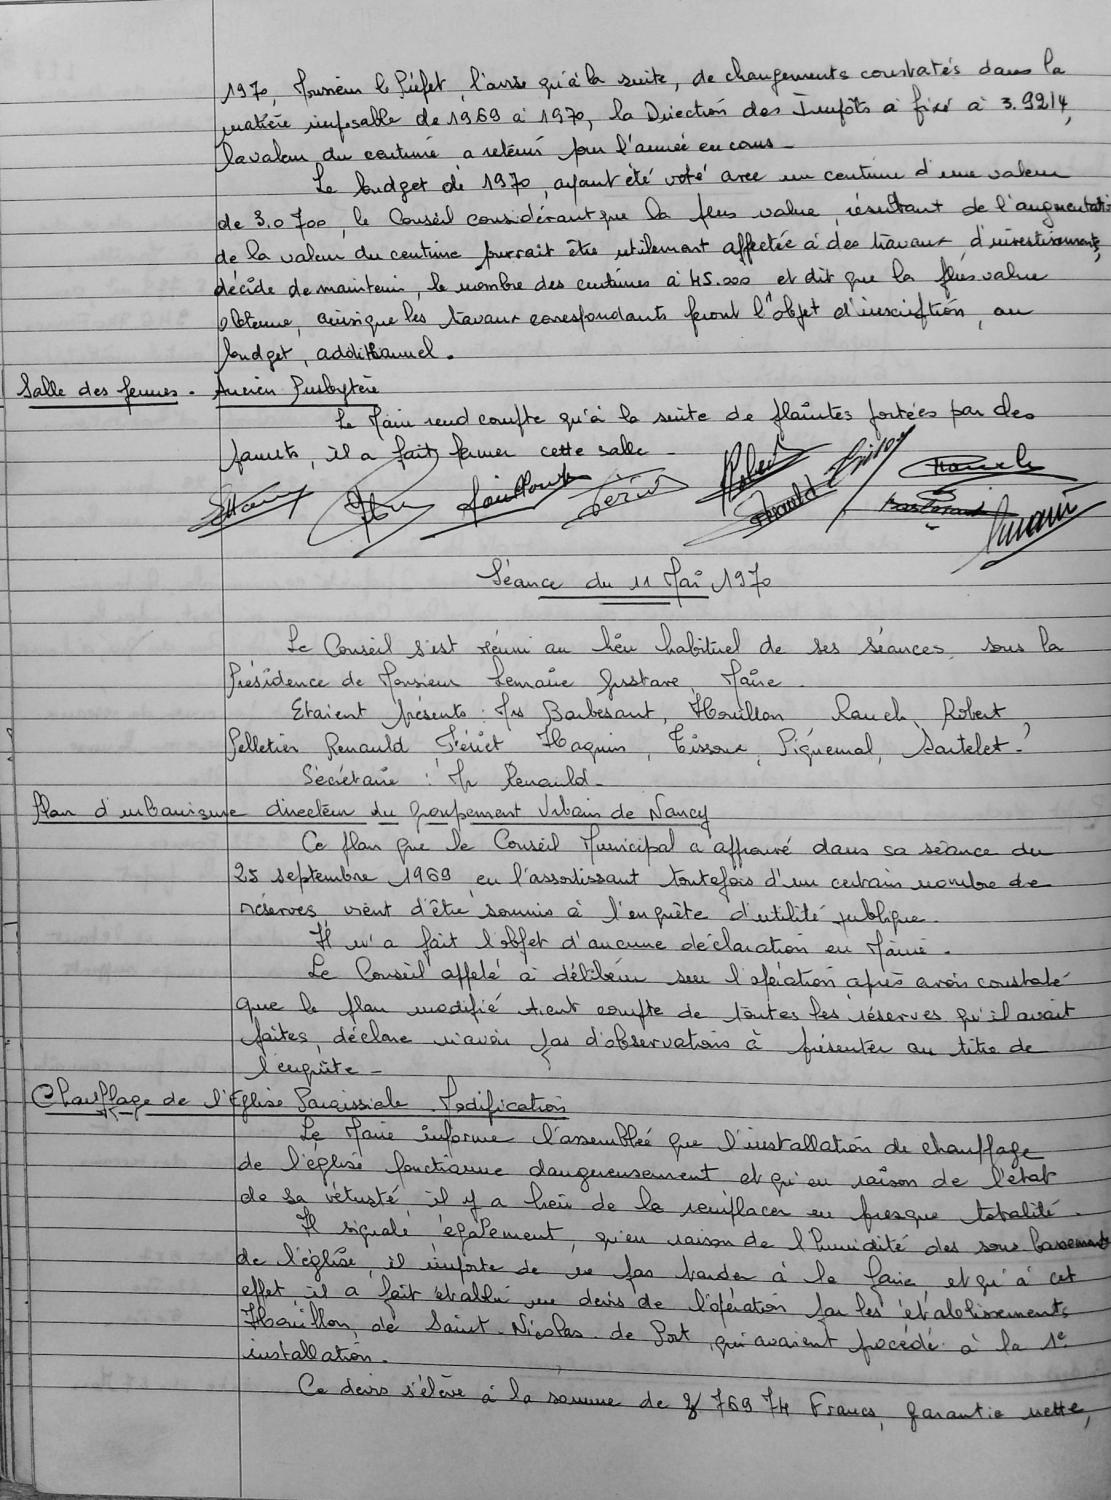 1970, Monsieur le Préfet, l'avise qu'à la suite, de changements constatés dans la
matière imposable de 1969 à 1970, la Direction des Impôts a fixé à 3.9214,
la valeur du centime a retenir pour l'année en cours _
Le budget de 1970, ayant été voté avec un centime d'une valeur
de 3.0700, le Conseil considérant que la plus value, résultant de l'augmentati
de la valeur du centime pourrait être utilement affectée à des travaux d'investissements,
décide de maintenir, le nombre des centimes à 45.000 et dit que la plus value
obtenue, ainsi que les travaux correspondants feront l'objet d'inscription, au
budget, additionnel.
Salle des jeunes - Ancien Presbytère
Le Maire rend compte qu'à la suite de plaintes portées par des
parents, il a fait fermer cette salle _
Houillon
Fériet
Robert
Renauld
Rauch
Barbesant
Séance du 11 Mai 1970
Le Conseil s'est réuni au lieu habituel de ses séances, sous la
Présidence de Monsieur Lemaire Gustave, Maire.
Etaient présents : Mrs Barbesant, Houillon Rauch, Robert
Pelletier Renauld Fériet Haquin, Tissoux, Piguemal, Sartelet.
Secrétaire : Mr Renauld _
Plan d'urbanisme directeur du Groupement Urbain de Nancy
Ce plan que le Conseil Municipal a approuvé dans sa séance du
25 septembre 1969 en l'assortissant toutefois d'un certain nombre de
réserves, vient d'être soumis à l'enquête d'utilité publique.
Il n'a fait l'objet d'aucune déclaration en Mairie.
Le Conseil appelé à délibérer sur l'opération après avoir constaté
que le plan modifié tient compte de toutes les réserves qu'il avait
faites, déclare n'avoir pas d'observations à présenter au titre de
l'enquête _
Chauffage de l'Eglise Paroissiale. Modification
Le Maire informe l'assemblée que l'installation de chauffage
de l'église fonctionne dangereusement et qu'en raison de l'état
de sa vétusté, il y a lieu de la remplacer en presque totalité.
Il signale également, qu'en raison de l'humidité des sous bassements
de l'église, il importe de ne pas tarder à le faire et qu'à cet
effet il a fait établir un devis de l'opération par les établissements
Houillon, de Saint-Nicolas-de Port, qui avaient procédé à la 1e
installation.
Ce devis s'élève à la somme de 8 769 74 Francs, garantie nette,